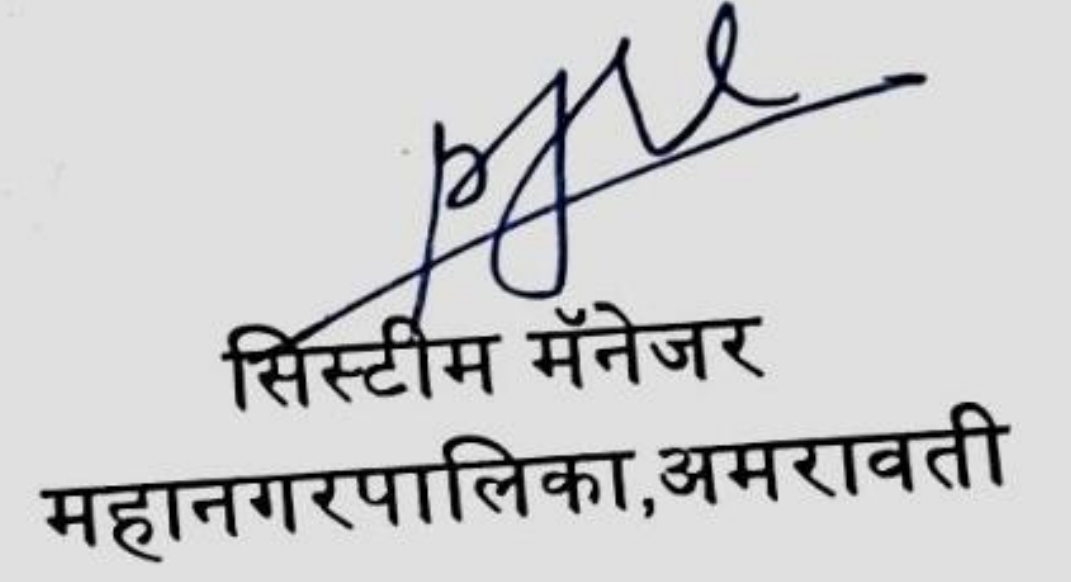 सिस्टीम मॅनेजर
महानगरपालिका,अमरावती